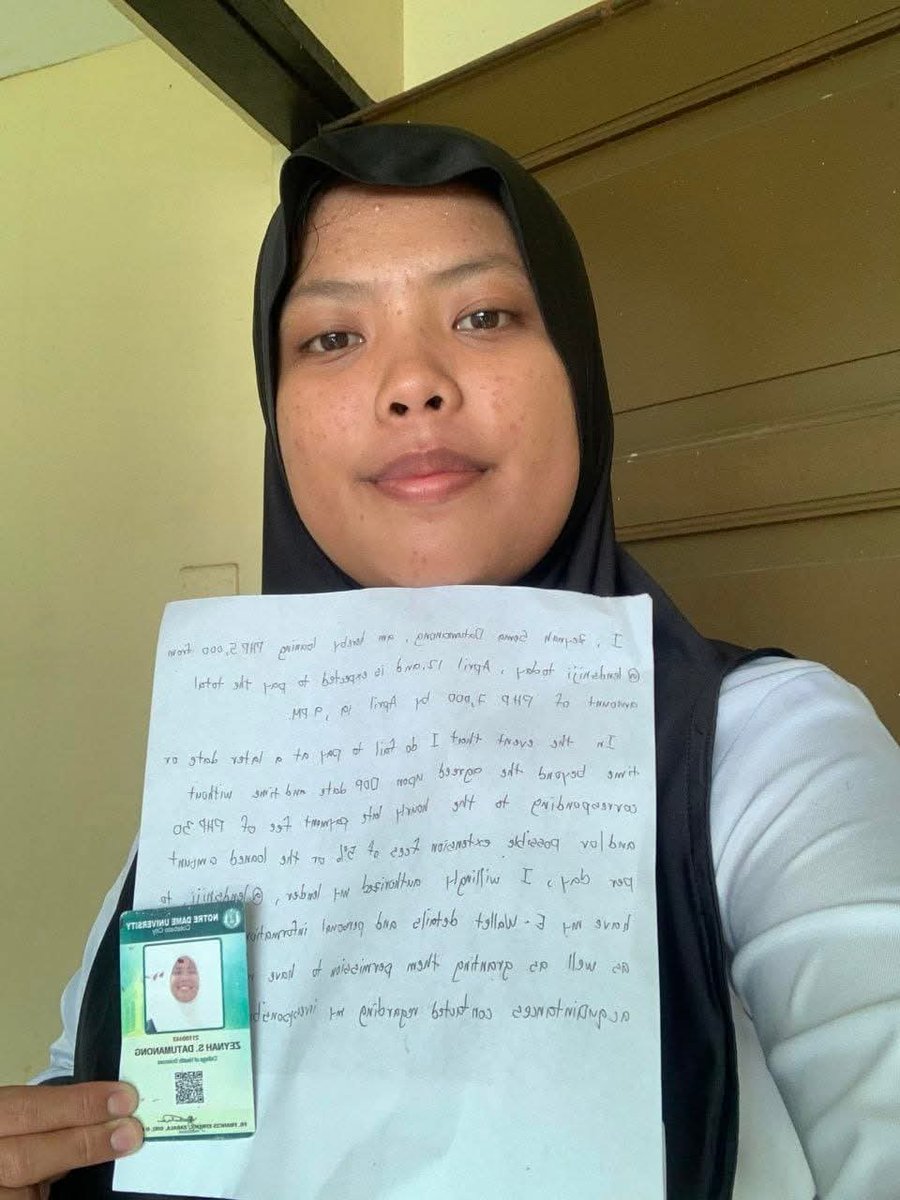 I, Zeynah Sema Datumanong, am hereby loaning PHP 5,000 from
@lendshiji today, April 12, and is expected to pay the total
amount of PHP 7,000 by April 19, 9 PM.
In the event that I do fail to pay at a later date or
time beyond the agreed upon DOP date and time without
corresponding to the hourly late payment fee of PHP 30
and/or possible extension fees of 5% or the loaned amount
per day, I willingly authorized my lender, @lendshiji, to
have my E-Wallet details and personal information
as well as granting them permission to have
acquaintances contacted regarding my
NOTRE DAME UNIVERSITY
Cotabato City
ZEYNAH S. DATUMANONG
College of Health Sciences